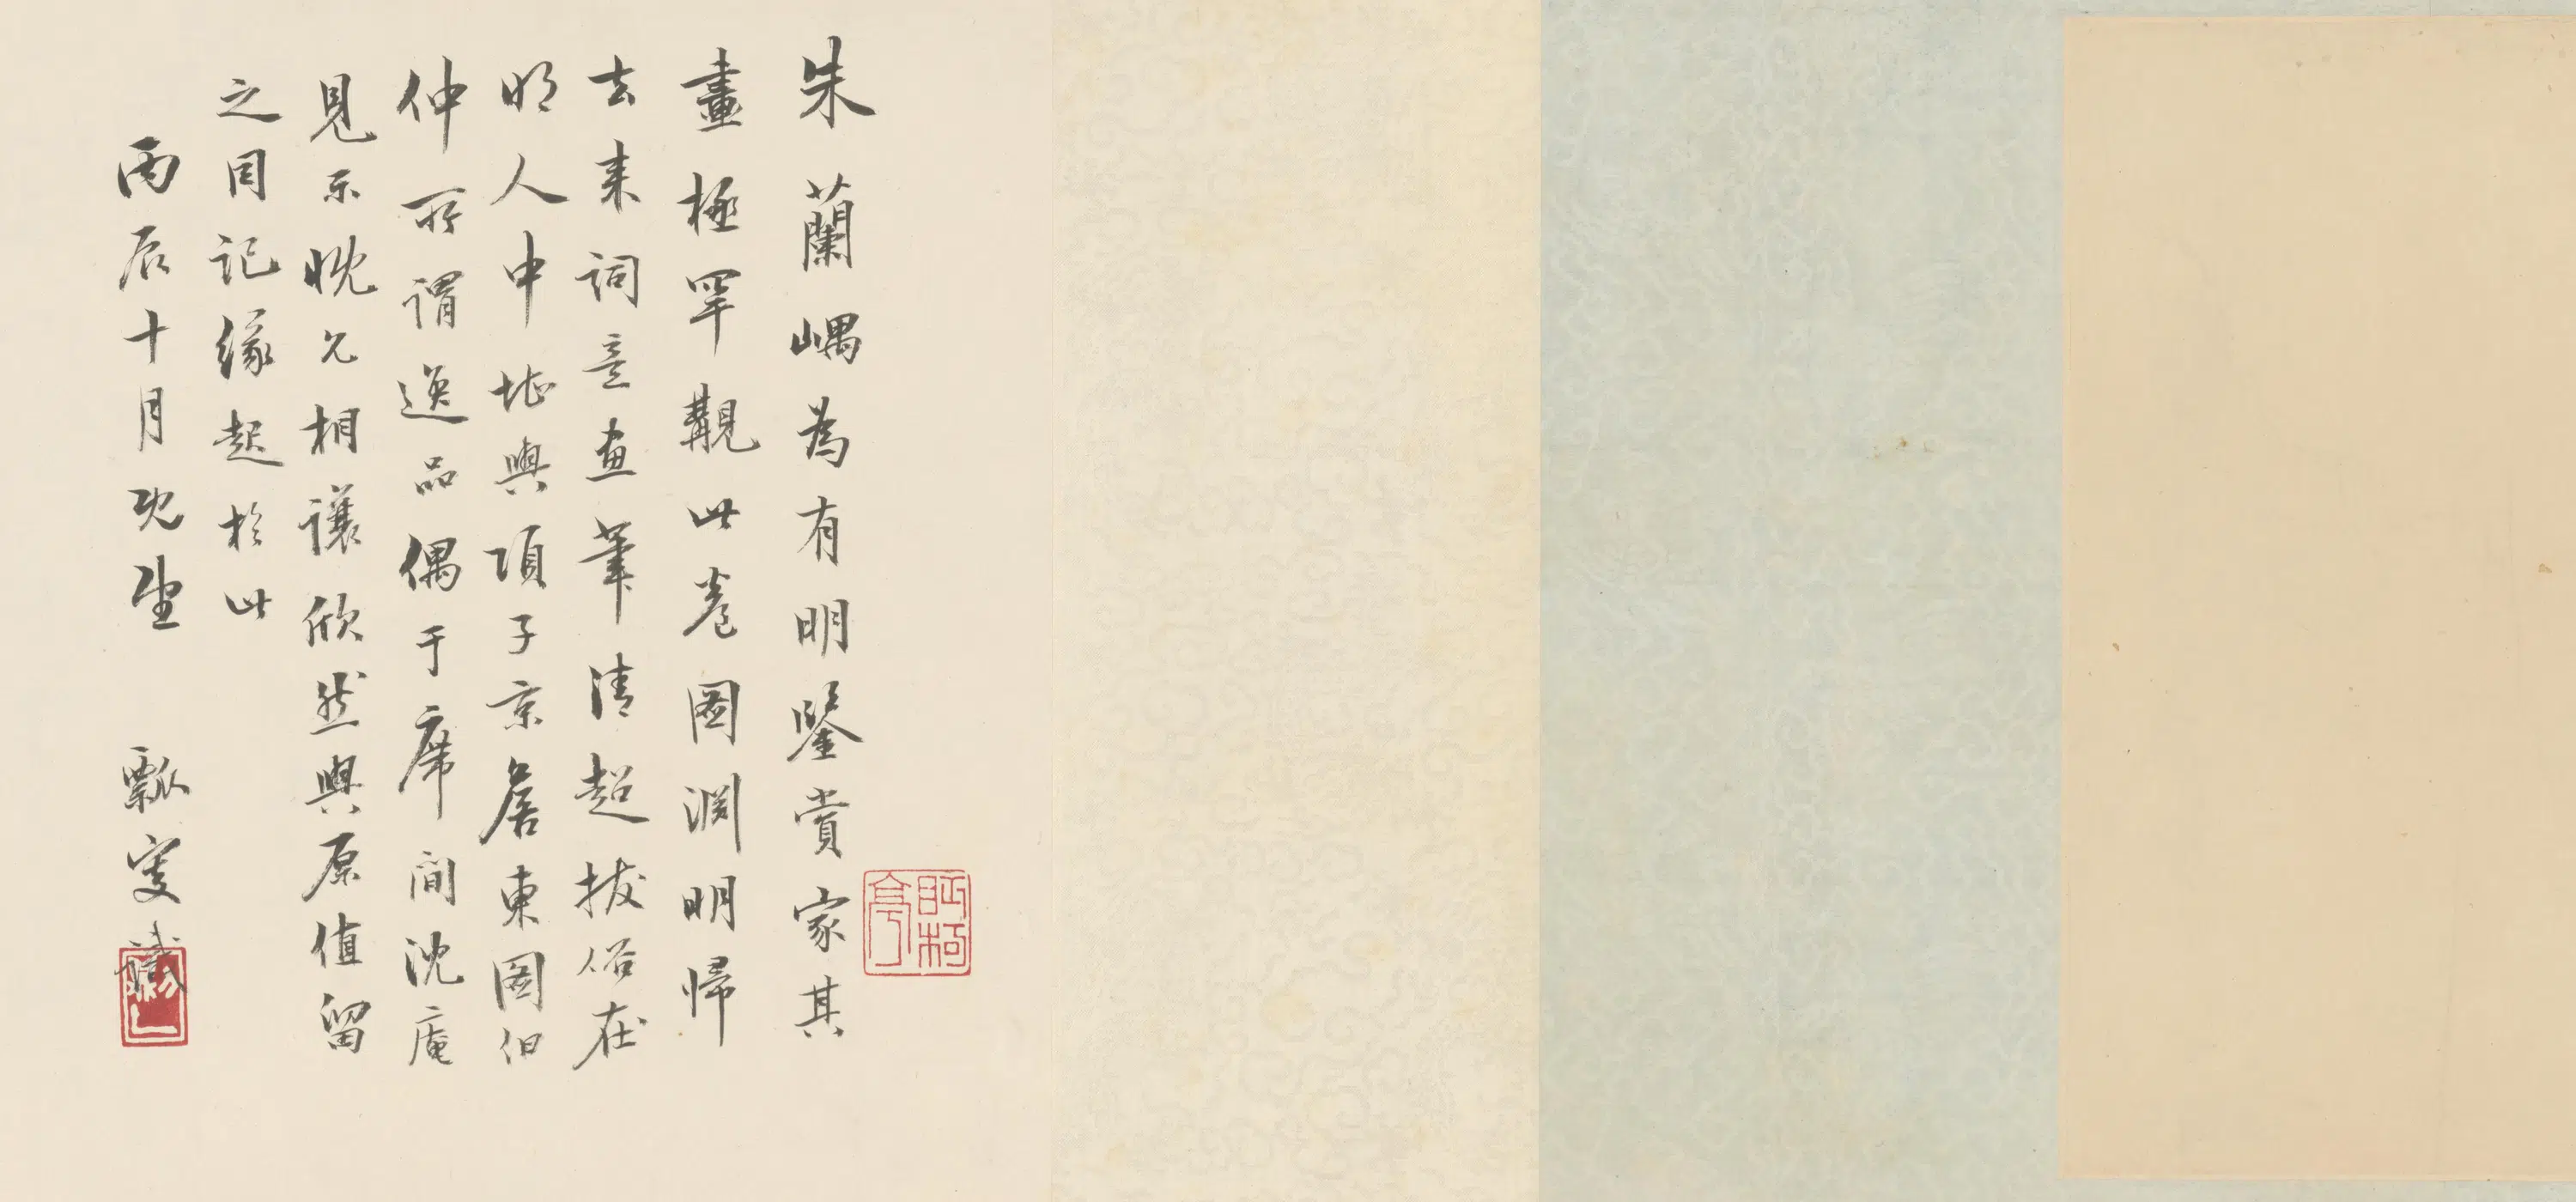 朱蘭嵎為有明鑒賞家其
畫極罕覯此卷圖淵明歸
去来詞意畫筆清超拔俗在
明人中堪與項子京詹東圖伯
仲所謂逸品偶于席間沈庵
見示貺允相讓欣然與原值留
之因記緣起於此
丙辰十月既望 瓢叟識